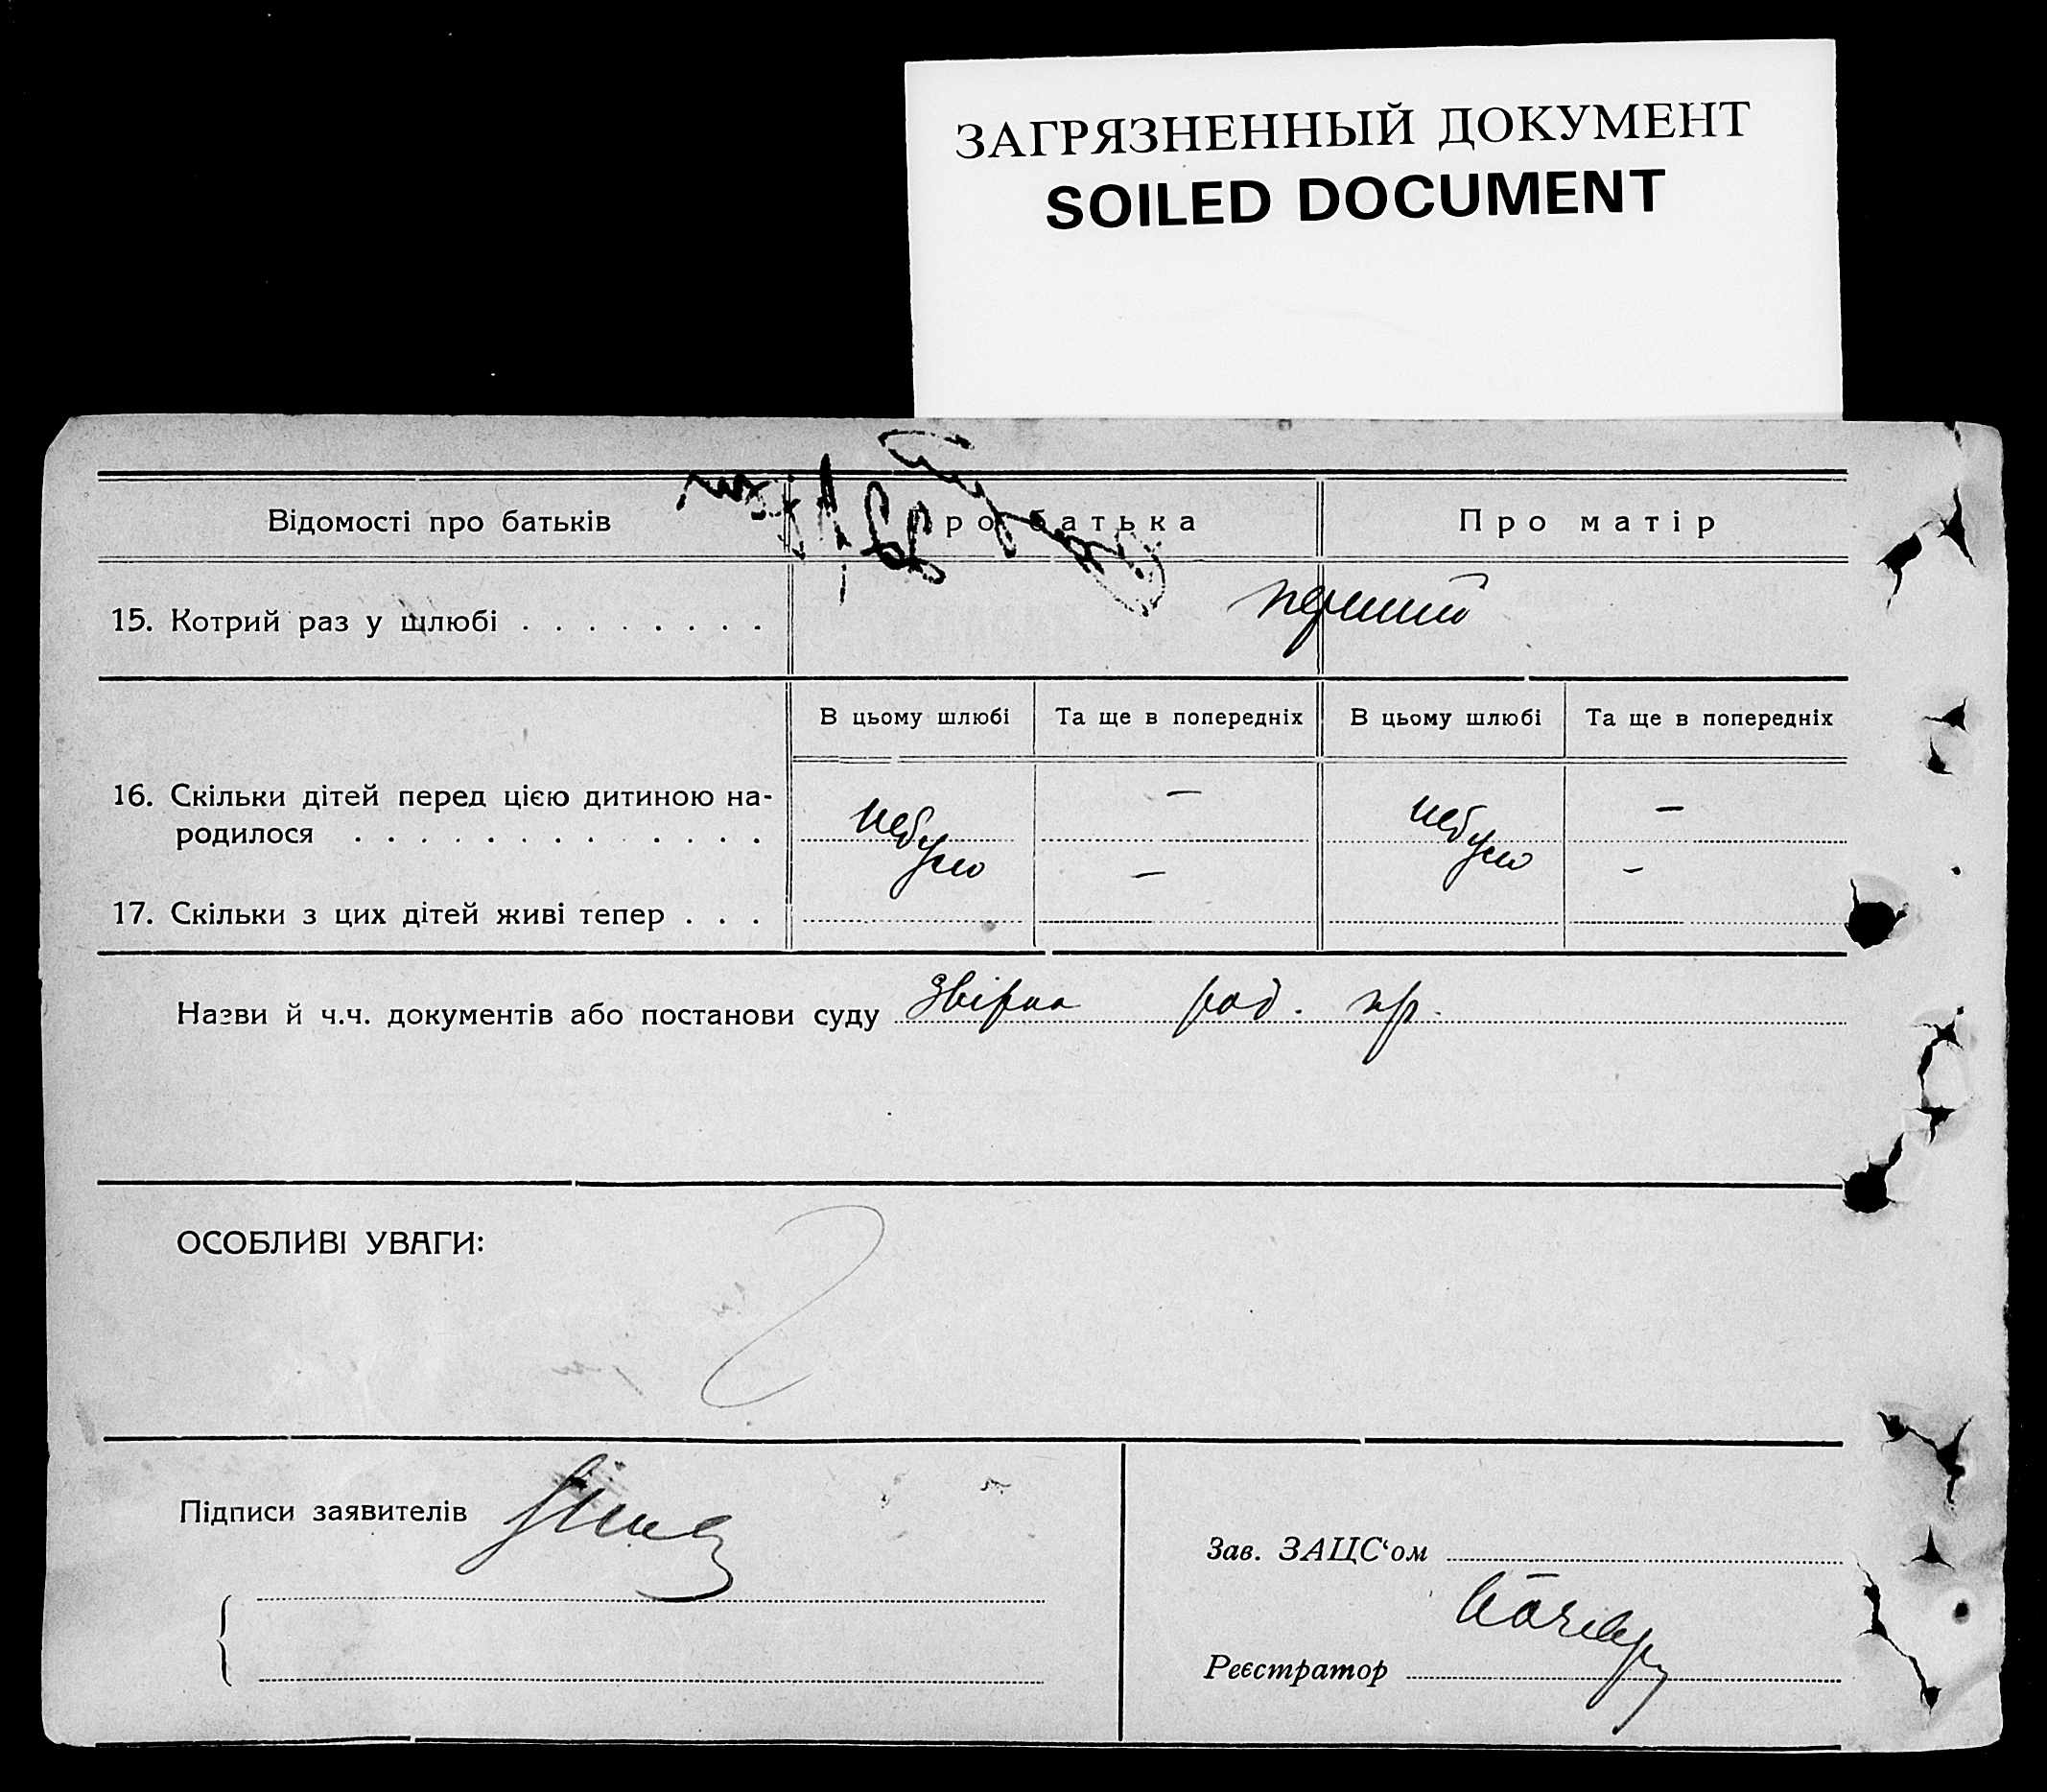 ЗАГРЯЗНЕННЫЙ ДОКУМЕНТ
SOILED DOCUMENT
Відомості про батьків Про батька Про матір
15. Котрий раз у шлюбі . . . . . . . . перший
В цьому шлюбі Та ще в попередніх В цьому шлюбі Та ще в попередніх
16. Скільки дітей перед цією дитиною на-
родилося . . . . . . . . . . . . . небуло — небуло —
17. Скільки з цих дітей живі тепер . . . — -
Назви й ч.ч. документів або постанови суду звірка
ОСОБЛИВІ УВАГИ:
Підписи заявителів
Зав. ЗАЦС‘ом
Реєстратор